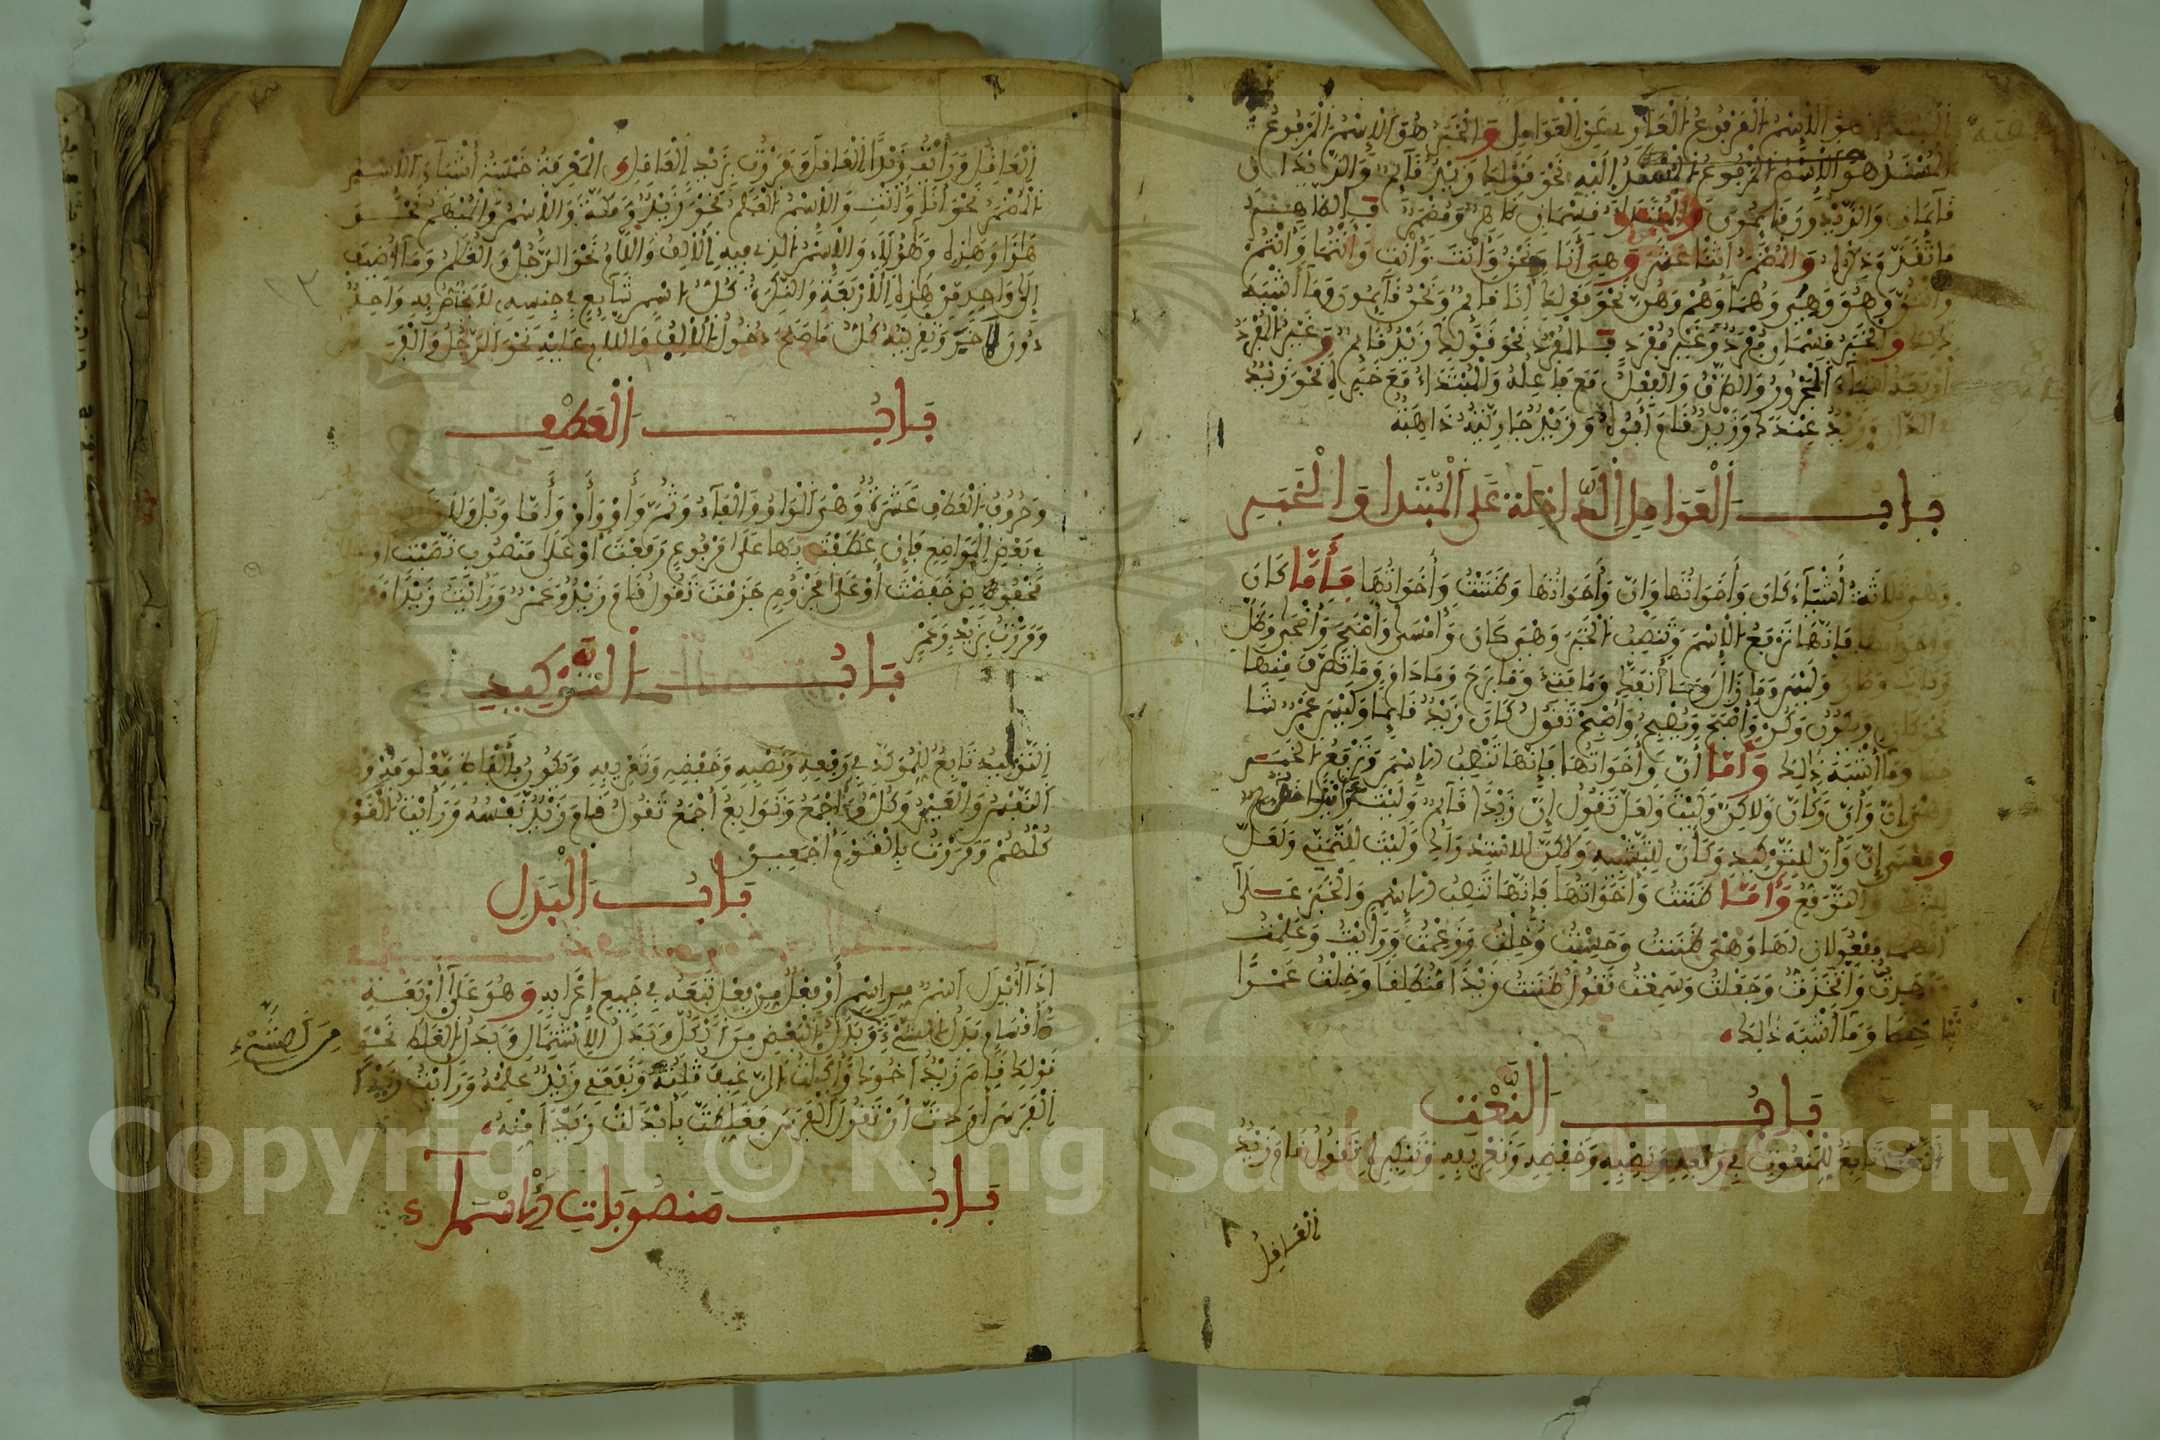 المبتدأ هو الإسم المرفوع العاري عن العوامل والخبر هو الإسم المرفوع
المسند إليه نحو قولك زيد قايم والزيدان
قايمان والزيدون قايمون والمبتدأ قسمان ظاهر ومضمر فالظاهر
ما تقدم ذكره والمضمر اثنا عشر وهي أنا ونحن وأنت وأنت وأنتما وأنتم
وأنتن وهو وهي وهما وهم وهن نحو قولك أنا قايم ونحن قايمون وما أشبه
ذلك والخبر قسمان مفرد وغير مفرد فالمفرد نحو قولك زيد قايم وغير المفرد
أربعة أشياء المجرور والظرف والفعل مع فاعله والمبتداء مع خبره نحو زيد
في الدار وزيد عندك وزيد قام أبوه وزيد جاريته ذاهبة
باب العوامل الداخلة على المبتدا والخبر
وهو ثلاثة أشياء كان وأخواتها وان وأخواتها وظننت وأخواتها فأما كان
وأخواتها فإنها ترفع الإسم وتنصب الخبر وهي كان وأمسى وأصبح وأضحى وظل
وبات وصار وليس وما زال وما أنفك وما فتئ وما برح وما دام وما تصرف منها
نحو كان ويكون وكن وأصبح ويصبح وأصبح تقول كان زيد قايما وليس عمر شا
خصا وما أشبه ذلك وأما أن وأخواتها فإنها تنصب الإسم وترفع الخبر
وهي إن وأن وكأن ولاكن وليت ولعل تقول إن زيدا قايم وليت
ومعنى إن وأن للتوكيد وكأن للتشبيه ولاكن للاستدراك وليت للتمني ولعل
للترجي والتوقع وأما ظننت وأخواتها فإنها تنصب الإسم والخبر على
أنهما مفعولان لها وهي ظننت وحسبت وخلت وزعمت ورأيت وعلمت
ووجدت واتخذت وجعلت وسمعت تقول ظننت زيدا منطلقا وخلت عمرا
شاخصا وما أشبه ذلك
باب النعت
النعت تابع للمنعوت في رفعه ونصبه وخفضه وتعريفه وتنكيره تقول قام زيد
العاقل
العاقل ورأيت زيدا العاقل ومررت بزيد العاقل والمعرفة خمسة أشياء الاسم
المضمر نحو أنا وأنت والإسم العلم نحو زيد ومكة والإسم المبهم نحو
هذا وهذه وهؤلاء والإسم الذي فيه الألف واللام نحو الرجل والغلام وما أضيف
إلى واحد من هذه الأربعة والنكرة كل اسم شايع في جنسه لا يختص به واحد
دون آخر وتقريبه كل ما صلح دخول الألف واللام عليه نحو الرجل والفرس
باب العطف
وحروف العطف عشرة وهي الواو والفاء وثم وأو وأم وأما وبل ولا
في بعض المواضع فإن عطفت بها على مرفوع رفعت أو على منصوب نصبت أو
مخفوض خفضت أو على مجزوم جزمت تقول قام زيد وعمر ورأيت زيدا
ومررت بزيد وعمر
باب التوكيد
التوكيد تابع للموكد في رفعه ونصبه وخفضه وتعريفه ويكون بألفاظ معلومة وهي
النفس والعين وكل وأجمع وتوابع أجمع تقول قام زيد نفسه ورأيت القوم
كلهم ومررت بالقوم أجمعين
باب البدل
إذا أبدل اسم من اسم أو فعل من فعل تبعه في جميع إعرابه وهو على أربعة
أقسام بدل الشيء وبدل البعض من الكل وبدل الإشتمال وبدل الغلط نحو
قولك قام زيد أخوك وأكلت الرغيف ثلثه ونفعني زيد علمه ورأيت زيدا
الفرس أردت أن تقول الفرس فغلطت بأبدلت زيدا منه
من الشيء
باب منصوبات الأسماء
Copyright © King Saud University